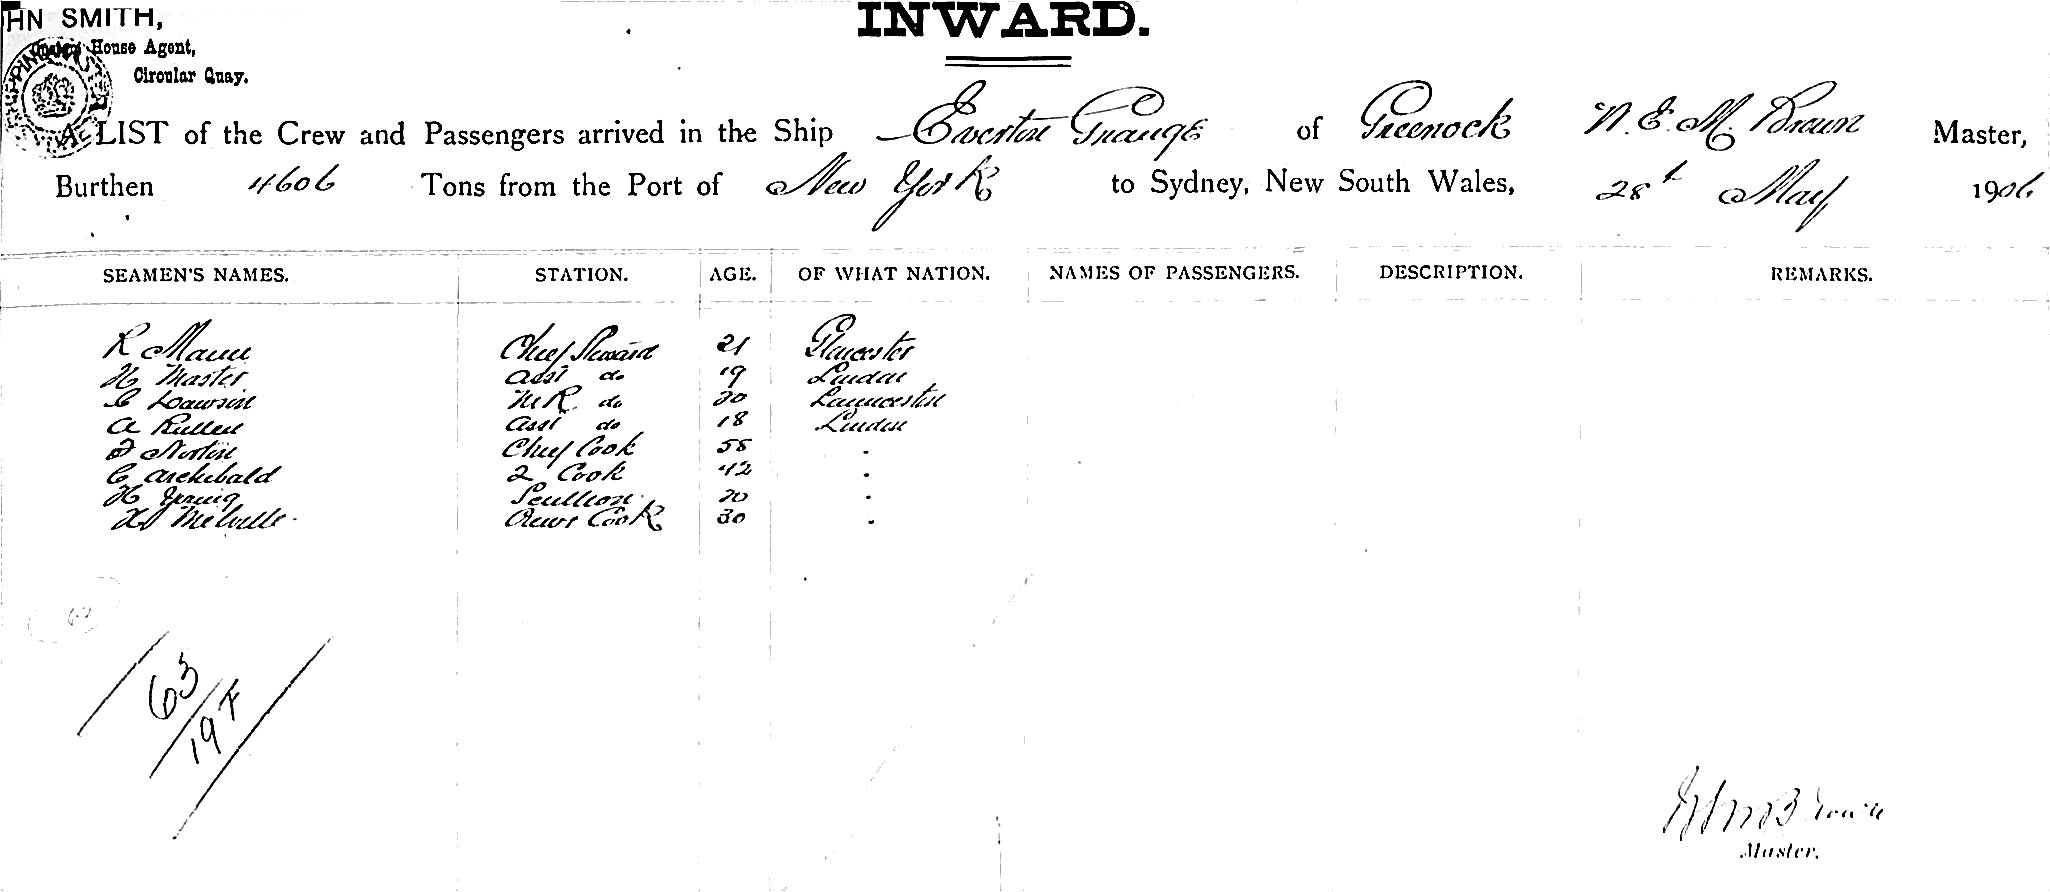 HN SMITH,
House Agent,
Circular Quay.
INWARD.
A LIST of the Crew and Passengers arrived in the Ship Everton Grange of Greenock N. E. M. Brown Master,
Burthen 4606 Tons from the Port of New York to Sydney, New South Wales, 28th May 1906
SEAMEN'S NAMES. STATION. AGE. OF WHAT NATION. NAMES OF PASSENGERS. DESCRIPTION. REMARKS.
R Mann Chief Steward 21 Gloucester
H Master Asst do 19 London
C Dawson M R do 20 Launceston
A Asst do 18 London
F Norton Chief Cook 58 "
C Archibald 2 Cook 42 "
H Young Scullion 20 "
H Melville. Crews Cook 30 "
63
197
Brown
Master.